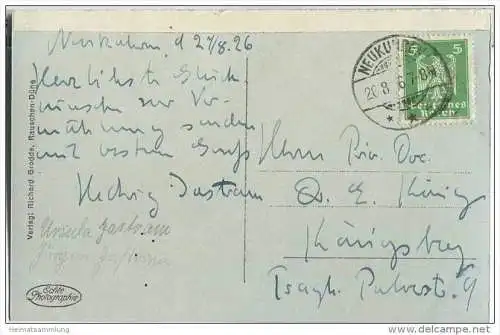 Neukuhren, d 27/8. 26
Herzliche Glück-
wünsche zur Ver-
mählung senden
mit besten Gruß
Hedwig Jastram
Ursula Jastram
Jürgen Jastram
Verlag: Richard Grodde, Rauschen-Düne
Echte
Photographie
NEUKUHREN
5
Deutsches
Reich
Herrn Priv. Doz.
D. E. König
Königsberg
Tragh. Pulverstr.
http://heimatsammlung.delcampe.net